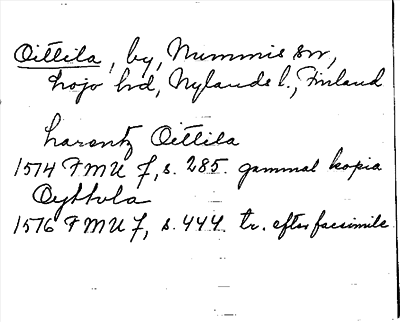 Oittila, by, Nummis sn,
Lojo hd, Nylands l., Finland
Larentz Oittila
1514 FMU 7, s. 285. gammal kopia
Oyttola
1516 FMU 7, s. 444. tr. efter facsimile